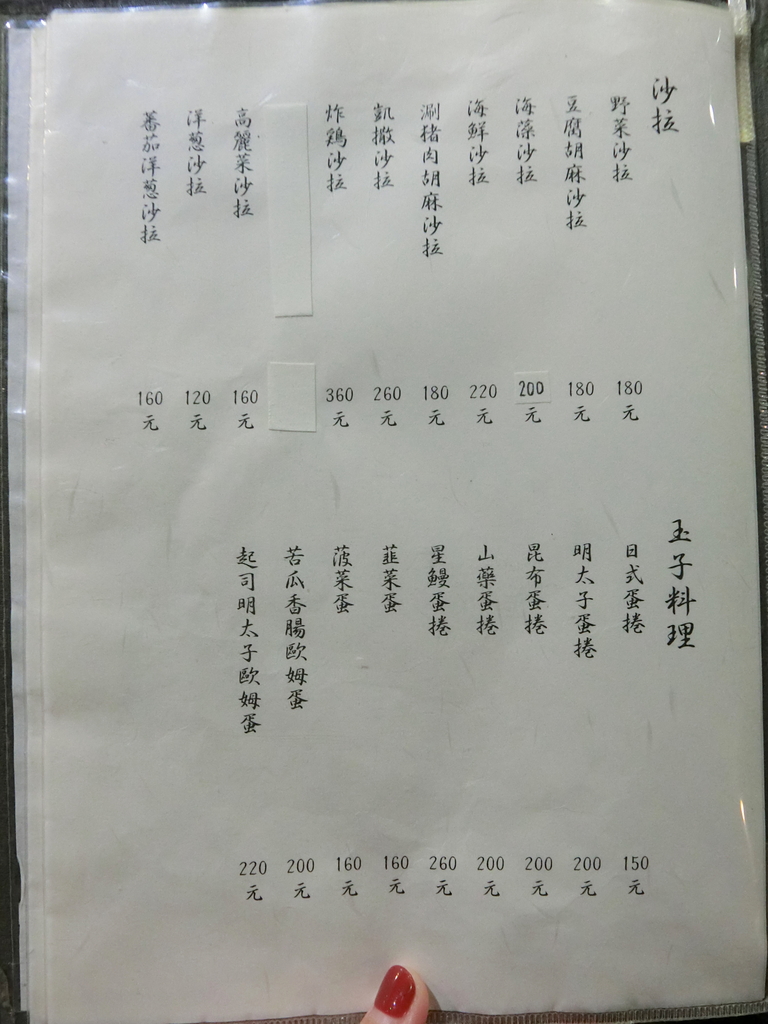 沙拉
野菜沙拉 180元
豆腐胡麻沙拉 180元
海藻沙拉 200元
海鮮沙拉 220元
涮豬肉胡麻沙拉 180元
凱撒沙拉 260元
炸鶏沙拉 360元
高麗菜沙拉 160元
洋蔥沙拉 120元
蕃茄洋蔥沙拉 160元
玉子料理
日式蛋捲 150元
明太子蛋捲 200元
昆布蛋捲 200元
山藥蛋捲 200元
星鰻蛋捲 260元
韮菜蛋 160元
菠菜蛋 160元
苦瓜香腸歐姆蛋 200元
起司明太子歐姆蛋 220元